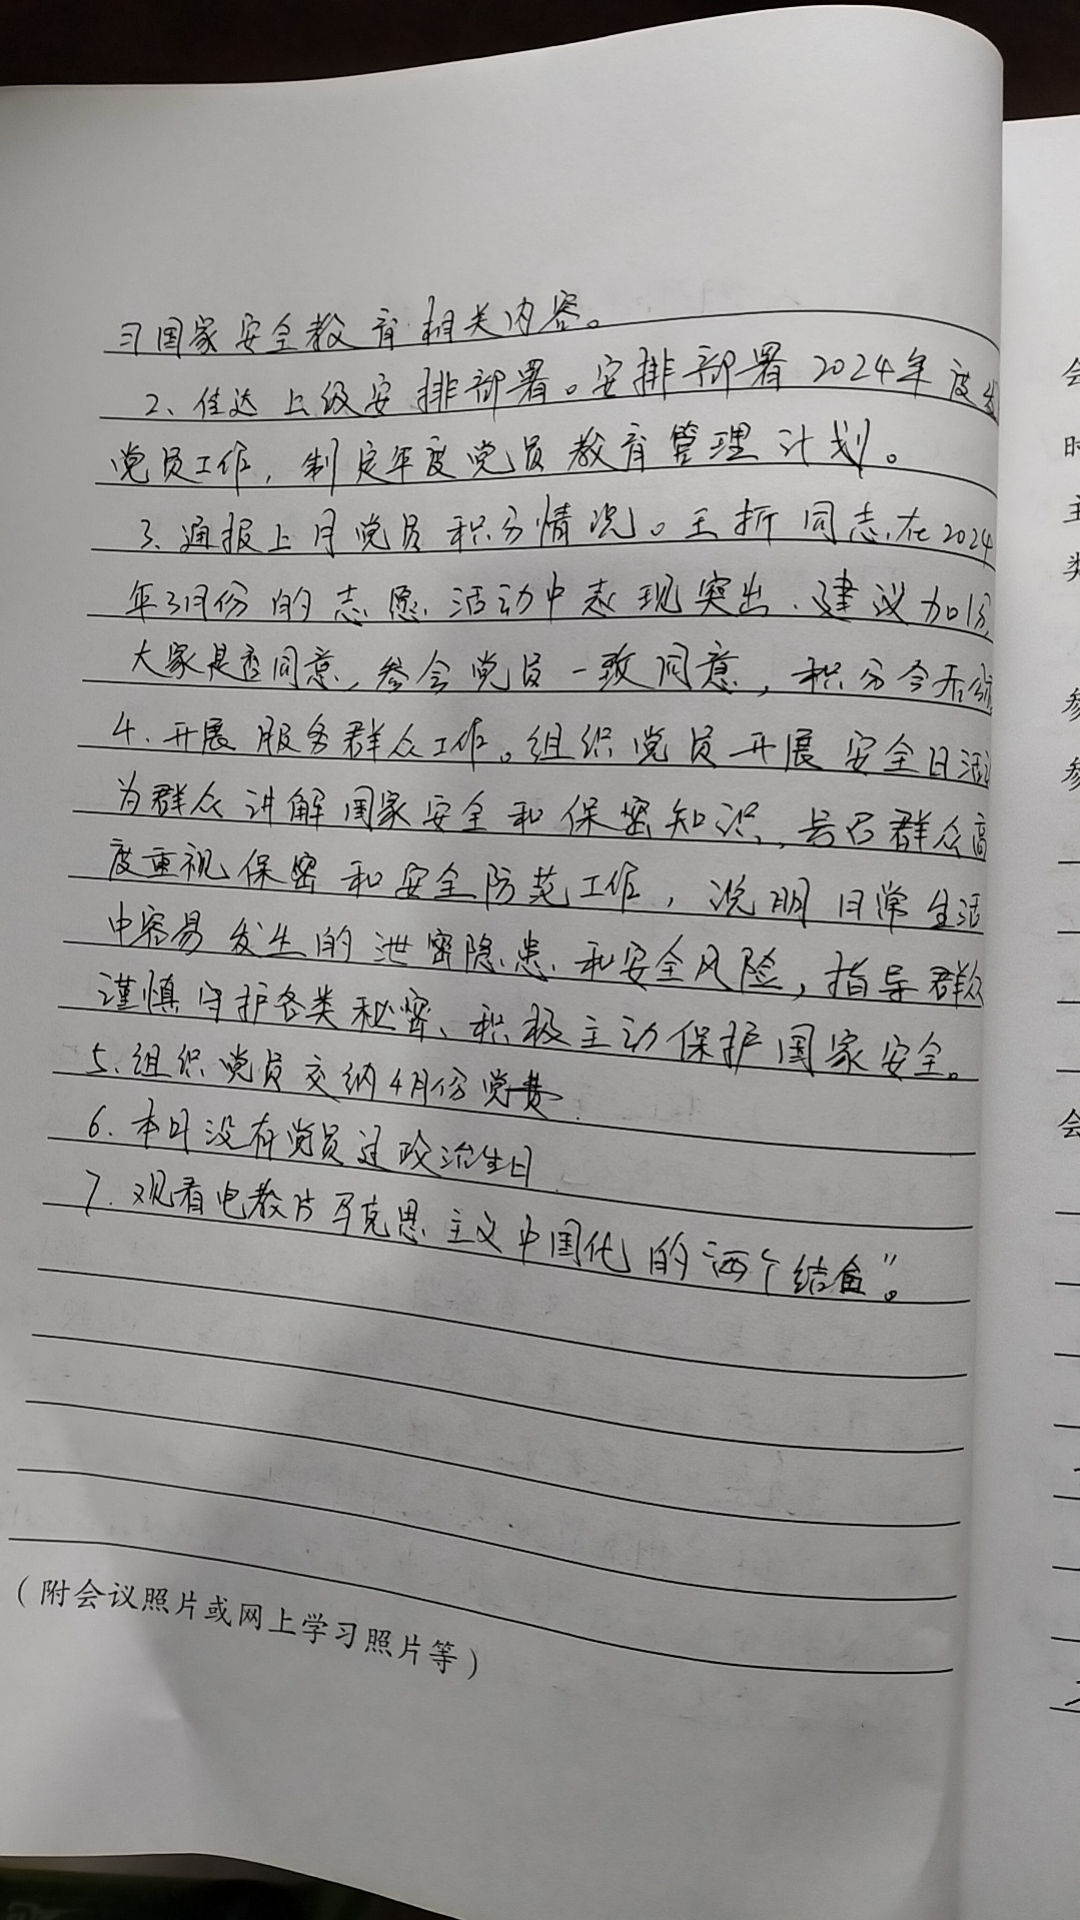 习国家安全教育相关内容。
2、传达上级安排部署。安排部署2024年度发
党员工作，制定年度党员教育管理计划。
3、通报上月党员积分情况。王折同志，在2024
年3月份的志愿活动中表现突出、建议加1分,
大家是否同意，参会党员一致同意，积分会后公示
4.开展服务群众工作。组织党员开展安全日活动
为群众讲解国家安全和保密知识，号召群众高
度重视保密和安全防范工作，说明日常生活
中容易发生的泄密隐患和安全风险，指导群众
谨慎守护各类秘密、积极主动保护国家安全。
5.组织党员交纳4月份党费
6.本月没有党员过政治生日
7.观看电教片马克思主义中国化的"两个结合"。
(附会议照片或网上学习照片等)
会
时
主
类
参
参
会